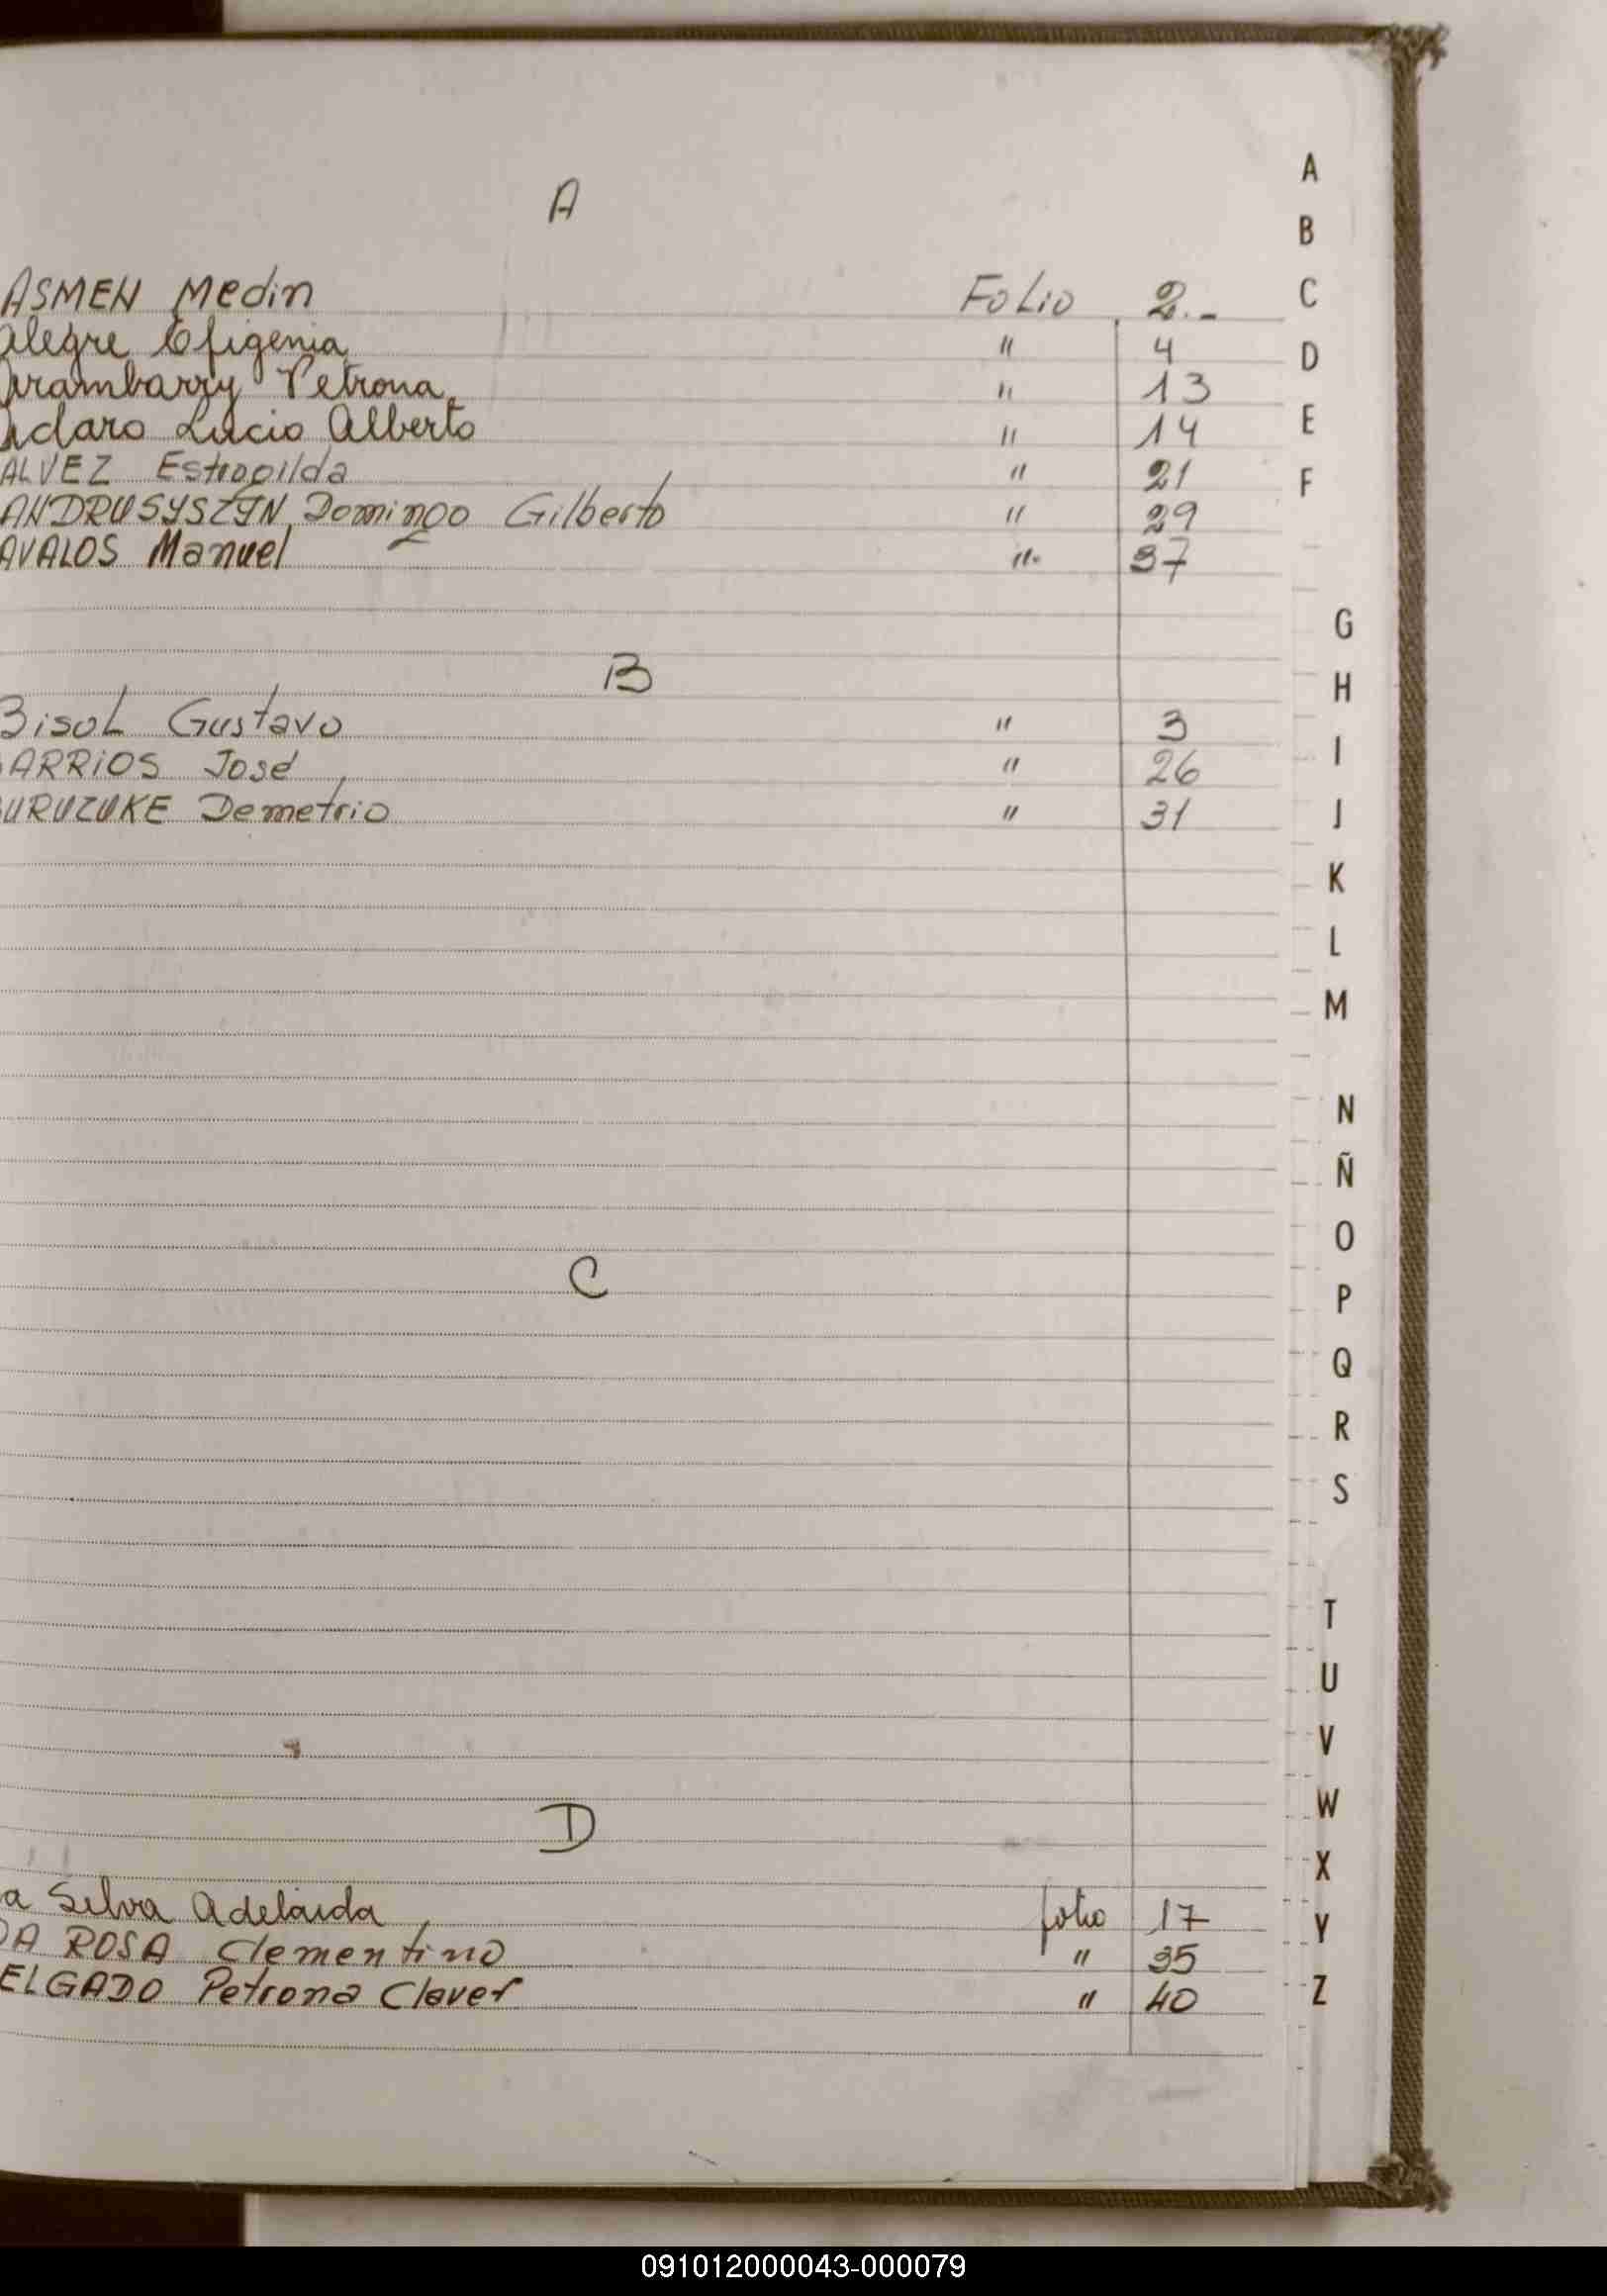 A
ASMEN Medin Folio 2.-
Alegre Efigenia " 4
Arambarry Petrona " 13
Adaro Lucio Alberto " 14
ALVEZ Estrogilda " 21
ANDRUSYSZYN, Domingo Gilberto " 29
AVALOS Manuel ". 37
B
Bisol Gustavo " 3
BARRIOS José " 26
BURUZUKE Demetrio " 31
C
D
a Silva Adelaida folio 17
DA ROSA Clementino " 35
ELGADO Petrona Claver " 40
A
B
C
D
E
F
G
H
I
J
K
L
M
N
Ñ
O
P
Q
R
S
T
U
V
W
X
Y
Z
091012000043-000079